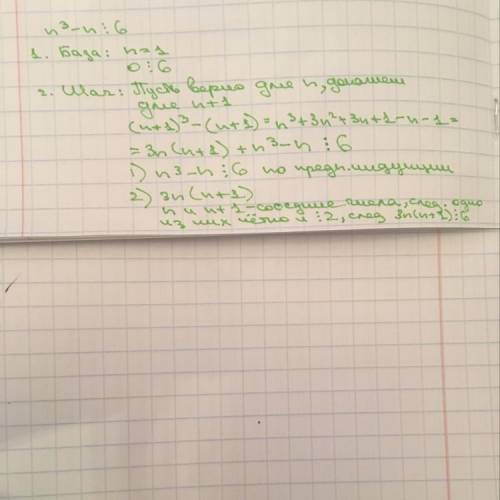 n³-n⋮6
1. База: n=1
0⋮6
2. Шаг: Пусть верно для n, докажем
для n+1
(n+1)³-(n+1)=n³+3n²+3n+1-n-1=
=3n(n+1)+n³-n⋮6
1) n³-n⋮6 по предп. индукции
2) 3n(n+1)
n и n+1-соседние числа, след. одно
из них чётно и ⋮2, след 3n(n+1)⋮6